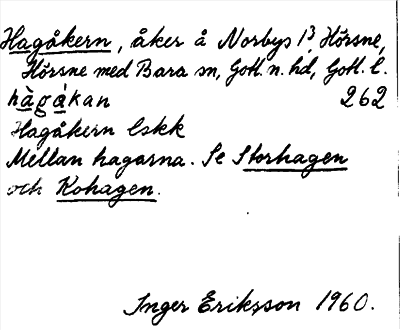 Hagåkern, åker å Norbys 1³, Hörsne,
Hörsne med Bara sn, Gotl. n. hd, Gotl. l.
hàgákan 262
Hagåkern lskk
Mellan hagarna. Se Storhagen
och Kohagen.
Inger Eriksson 1960.